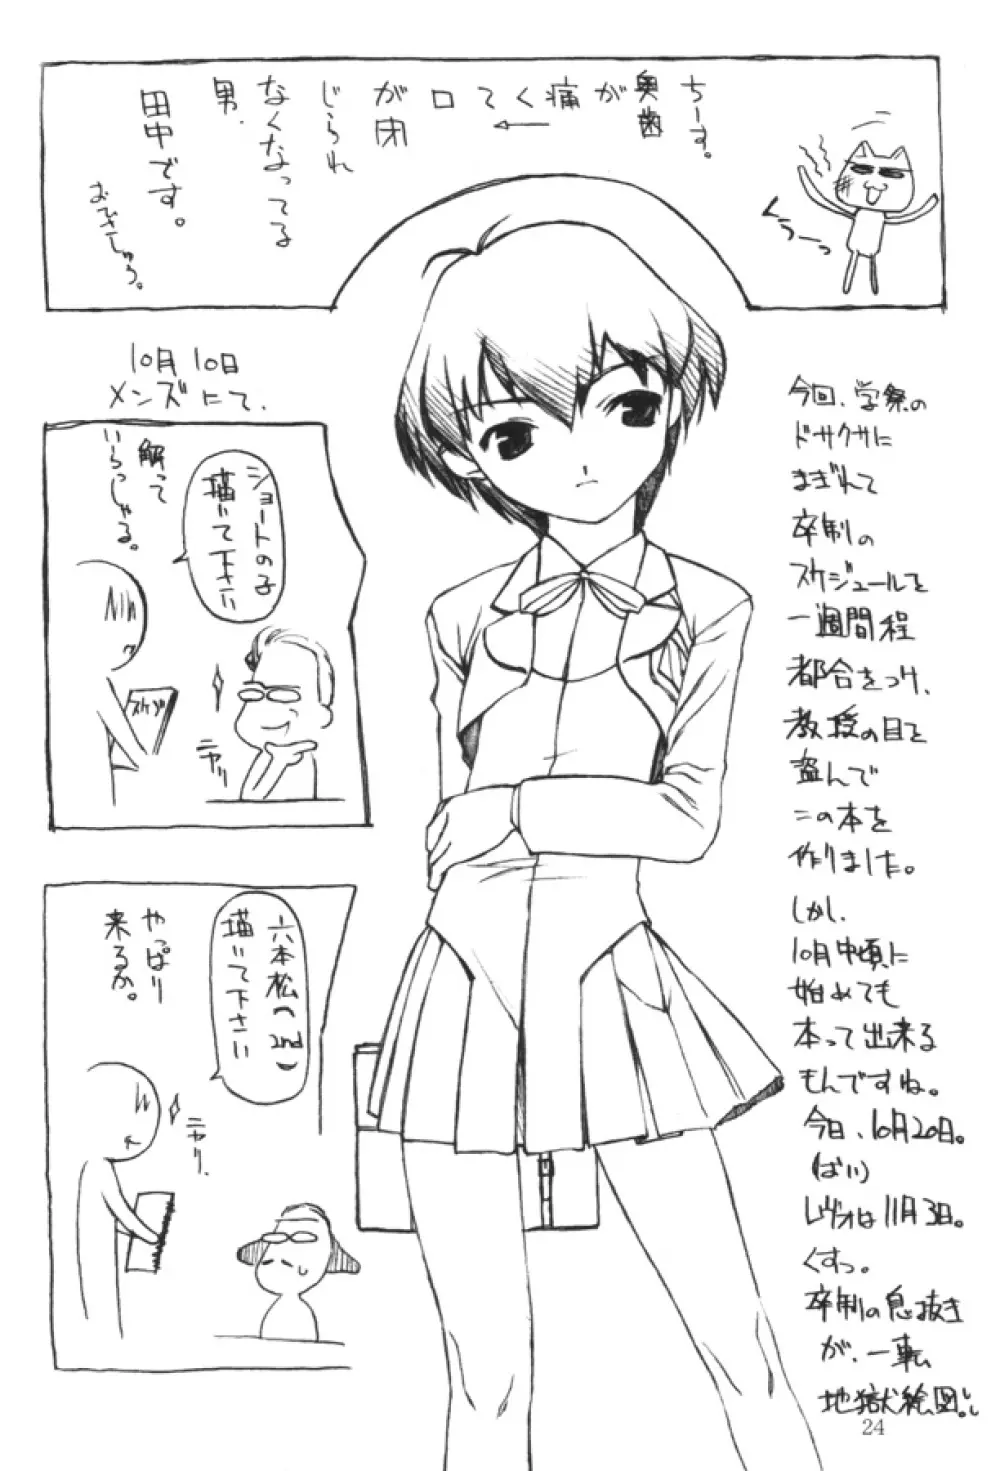 ちーす。
奥歯
が痛くて口が
閉
じられ
なくなってる
男、
田中です。
おひさしゅう。
くうーっ
10月10日
メンズにて、
ショートの子
描いて下さい
解って
いらっしゃる。
スケブ
ニヤリ
六本松(2nd)
描いて下さい
やっぱり
来るか。
ニヤリ、
今回、学祭の
ドサクサに
まぎれて
卒制の
スケジュールを
一週間程
都合をつけ、
教授の目を
盗んで
この本を
作りました。
しかし、
10月中頃に
始めても
本って出来る
もんですね。
今日、10月20日。
(ばい)
レヴォは11月3日。
くすっ。
卒制の息抜き
が、一転
地獄絵図。
24